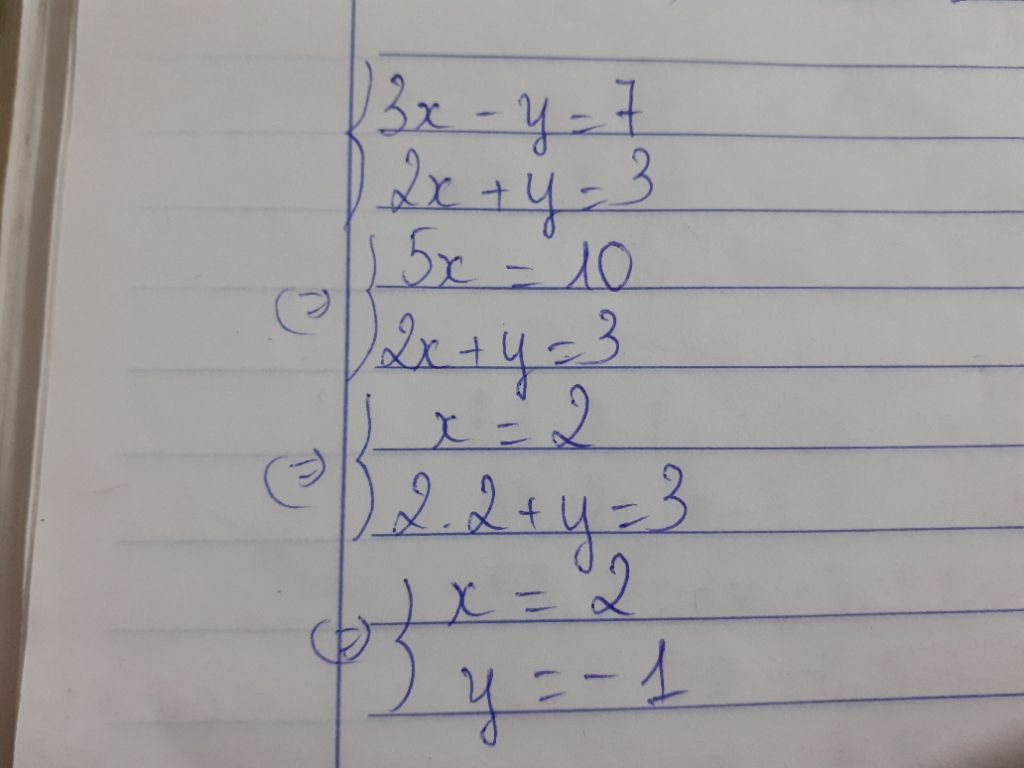 3x - y = 7
2x + y = 3
5x = 10
(=) 2x + y = 3
x = 2
(=) 2.2 + y = 3
x = 2
(=) y = -1